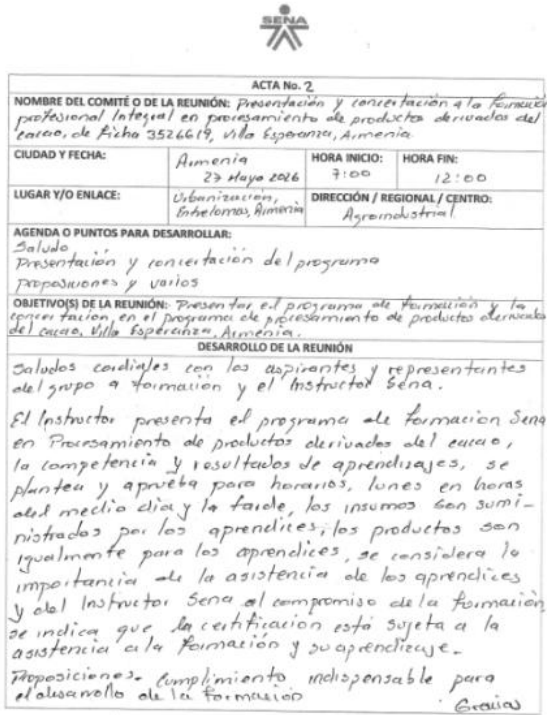 SENA
ACTA No. 2
NOMBRE DEL COMITÉ O DE LA REUNIÓN: Presentación y concertación a la formación
profesional Integral en procesamiento de productos derivados del
cacao, de ficha 3526619, Villa Esperanza, Armenia.
CIUDAD Y FECHA:
Armenia
27 Mayo 2026
HORA INICIO:
7:00
HORA FIN:
12:00
LUGAR Y/O ENLACE:
Urbanización,
Entrelomas, Armenia
DIRECCIÓN / REGIONAL / CENTRO:
Agroindustrial
AGENDA O PUNTOS PARA DESARROLLAR:
Saludo
Presentación y concertación del programa
proposiciones y varios
OBJETIVO(S) DE LA REUNIÓN: Presentar el programa de formación y la
concertación, en el programa de procesamiento de productos derivados
del cacao, Villa Esperanza, Armenia.
DESARROLLO DE LA REUNIÓN
Saludos cordiales con los aspirantes y representantes
del grupo a formación y el Instructor Sena.
El Instructor presenta el programa de formacion Sena
en Procesamiento de productos derivados del cacao,
la competencia y resultados de aprendizajes, se
plantea y aprueba para horarios, lunes en horas
del medio dia y la tarde, los insumos son sumi-
nistrados por los aprendices, los productos son
igualmente para los aprendices, se considera la
importancia de la asistencia de los aprendices
y del Instructor Sena al compromiso de la formación,
se indica que la certificación está sujeta a la
asistencia a la formación y su aprendizaje.
Proposiciones. Cumplimiento indispensable para
el desarrollo de la formación
Gracias